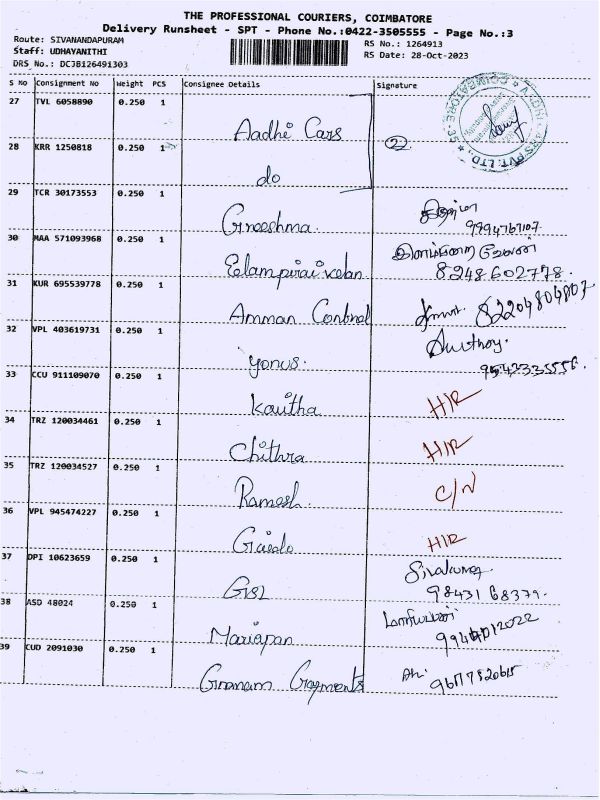 THE PROFESSIONAL COURIERS, COIMBATORE
Delivery Runsheet - SPT - Phone No.:0422-3505555 - Page No.:3
Route: SIVANANDAPURAM
RS No.: 1264913
Staff: UDHAYANITHI
RS Date: 28-Oct-2023
DRS No.: DCJB126491303
S No Consignment No Weight PCS Consignee Details Signature
27 TVL 6058890 0.250 1 Aadhi Cars
28 KRR 1250818 0.250 1 do 2
29 TCR 30173553 0.250 1 Greeshma 9994767107
30 MAA 571093968 0.250 1 Elampirai velan 8248602778.
31 KUR 695539778 0.250 1 Amman Control 82204804807
32 VPL 403619731 0.250 1 yonus
33 CCU 911109070 0.250 1 Kavitha H/R
34 TRZ 120034461 0.250 1 Chithra H/R
35 TRZ 120034527 0.250 1 Ramesh C/N
36 VPL 945474227 0.250 1 H/R
37 DPI 10623659 0.250 1 Sivakumar. 98431 68379.
38 ASD 48024 0.250 1 Mariapan
39 CUD 2091030 0.250 1 Gnanam Garments